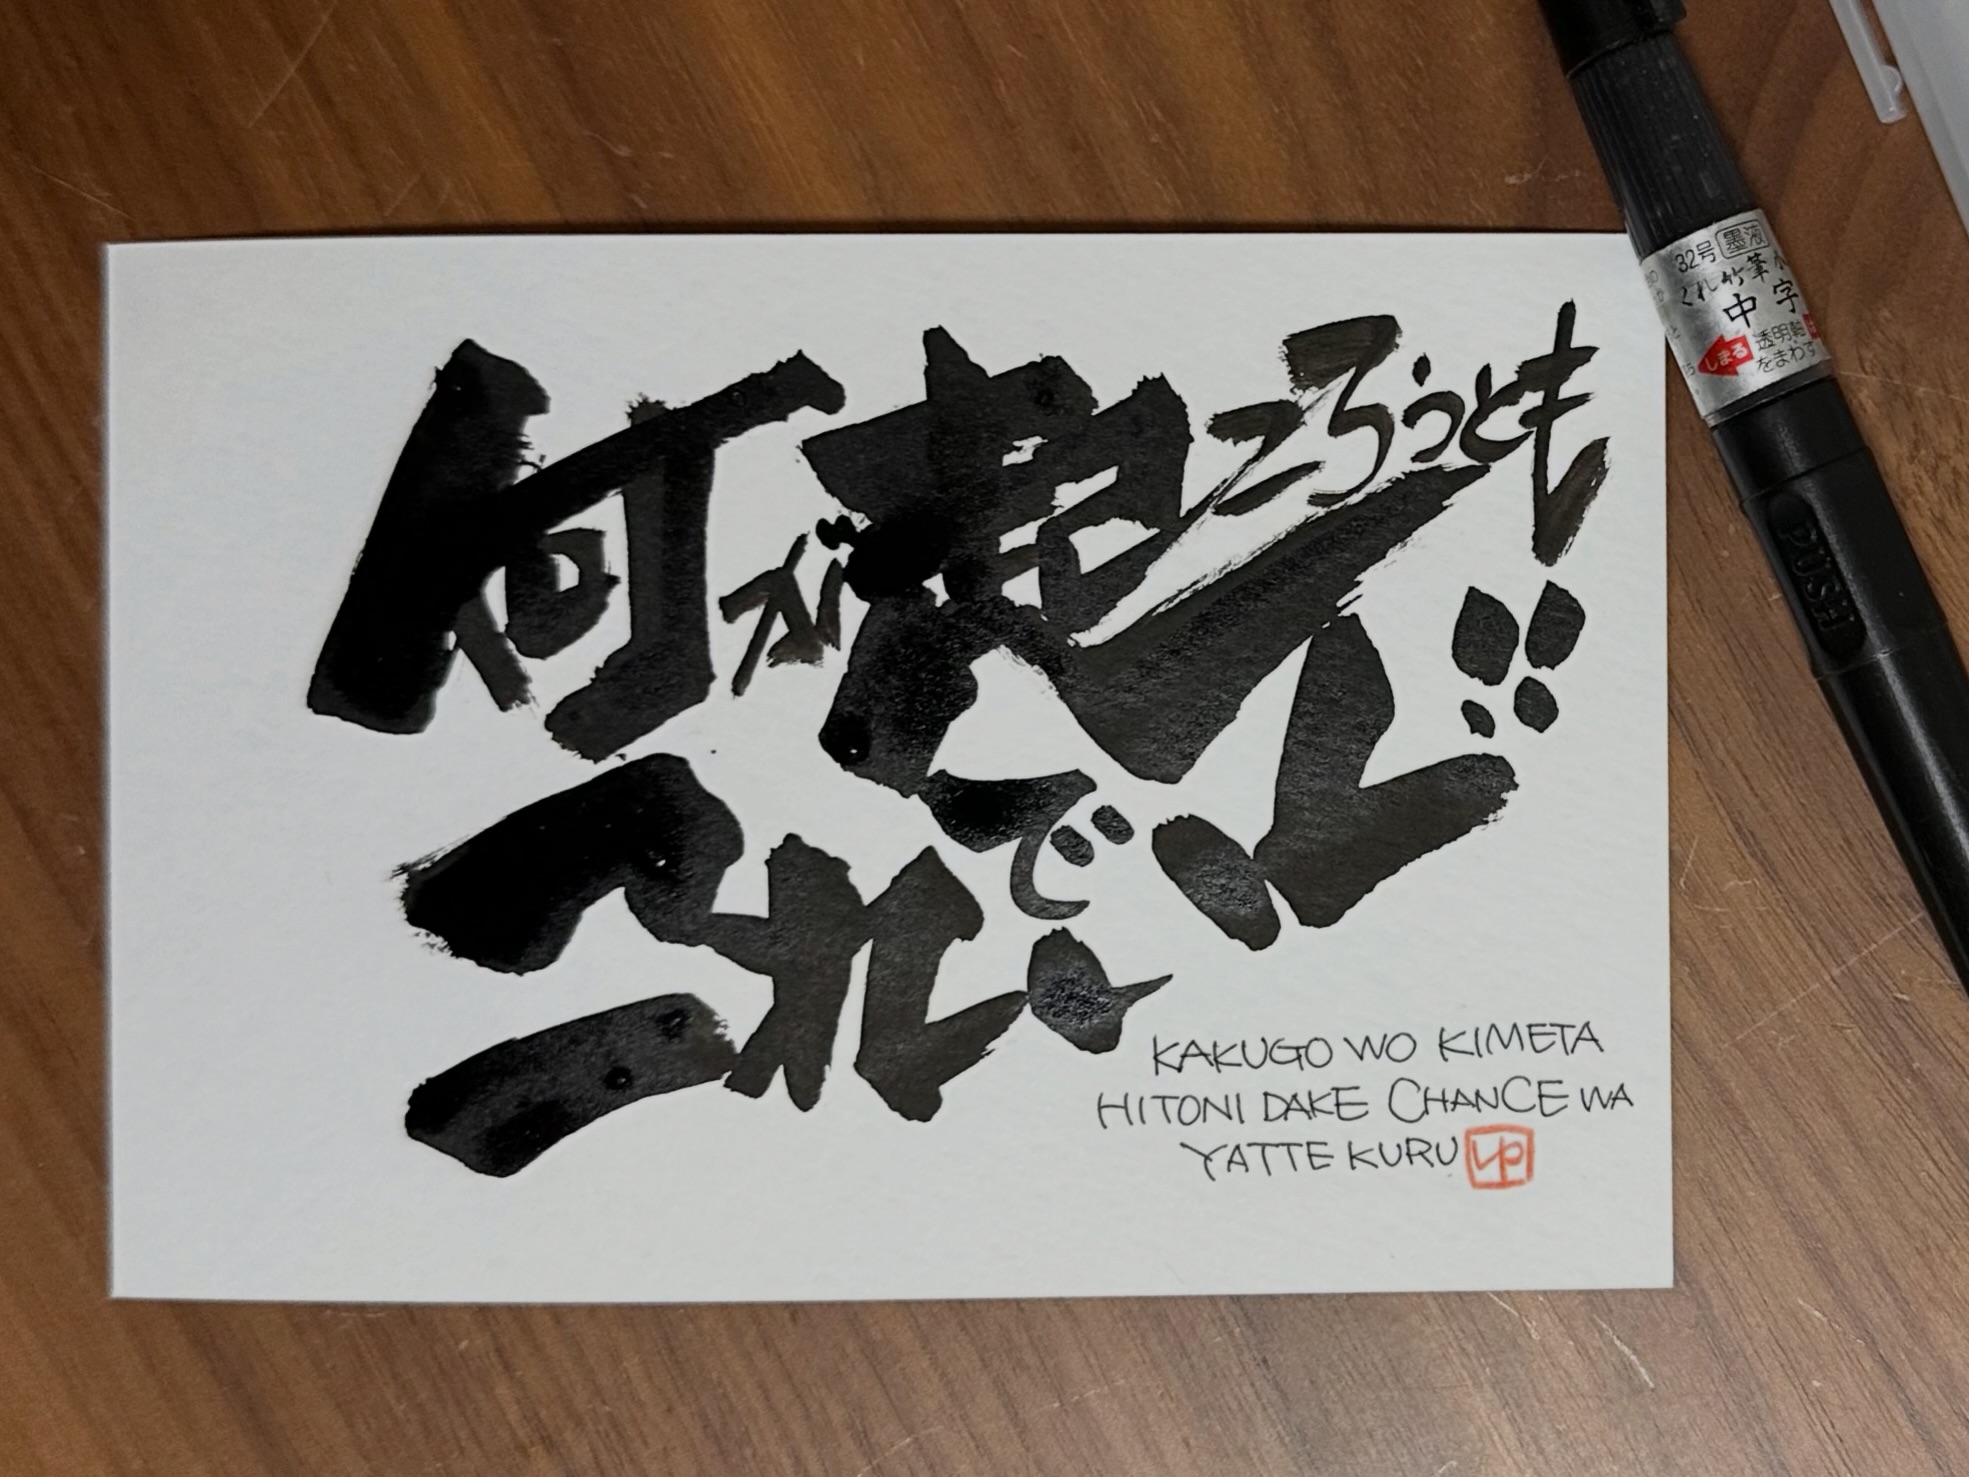 何が起ころうとも
これで
KAKUGO WO KIMETA
HITONI DAKE CHANCE WA
YATTE KURU
ゆ
32号 墨液
くれ竹筆
中字
しまる
透明軸
をまわす
PUSH